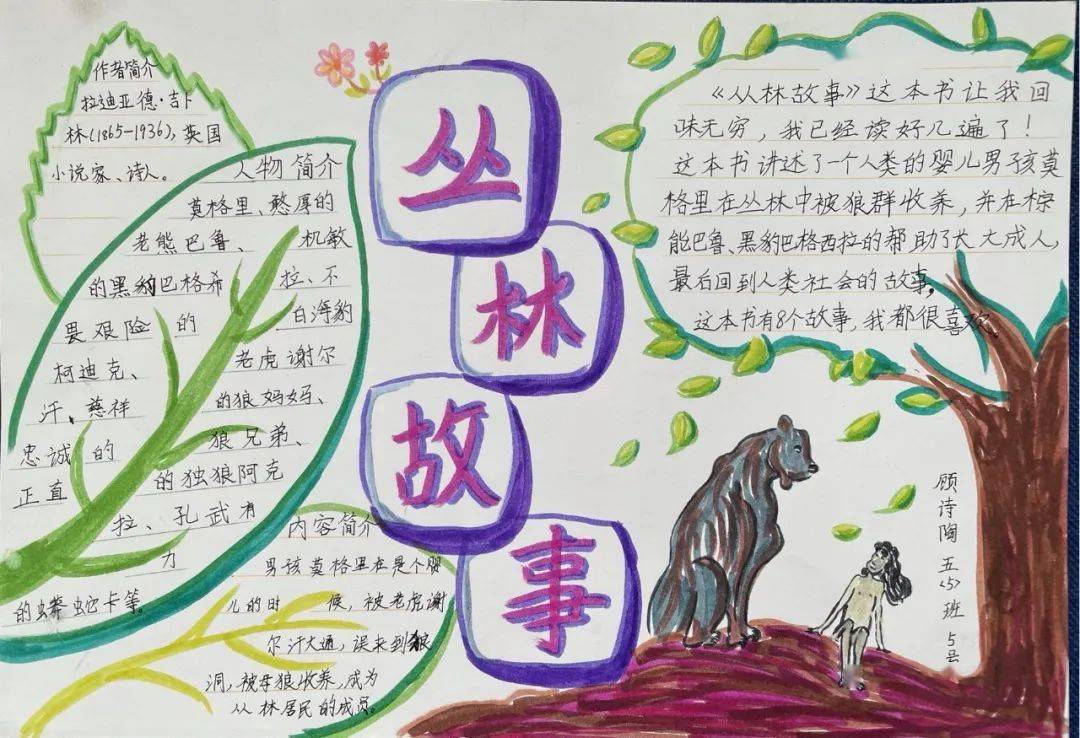 作者简介
拉迪亚德·吉卜
林(1865-1936),英国
小说家、诗人。
人物简介
莫格里、憨厚的
老熊巴鲁、 机敏
的黑豹巴格希 拉、不
畏艰险的 白海豹
柯迪克、 老虎谢尔
汗、慈祥 的狼妈妈、
忠诚的 狼兄弟、
正直 的独狼阿克
拉、孔武有
力
的蟒蛇卡等。
内容简介
男孩莫格里在是个婴
儿的时 候,被老虎谢
尔汗大通,误来到狼
洞,被母狼收养,成为
丛林居民的成员。
丛
林
故
事
《丛林故事》这本书让我回
味无穷,我已经读好几遍了!
这本书讲述了一个人类的婴儿男孩莫
格里在丛林中被狼群收养,并在棕
能巴鲁、黑豹巴格西拉的帮助了长大成人,
最后回到人类社会的故事,
这本书有8个故事,我都很喜欢。
顾诗陶 五〈5〉班 5号